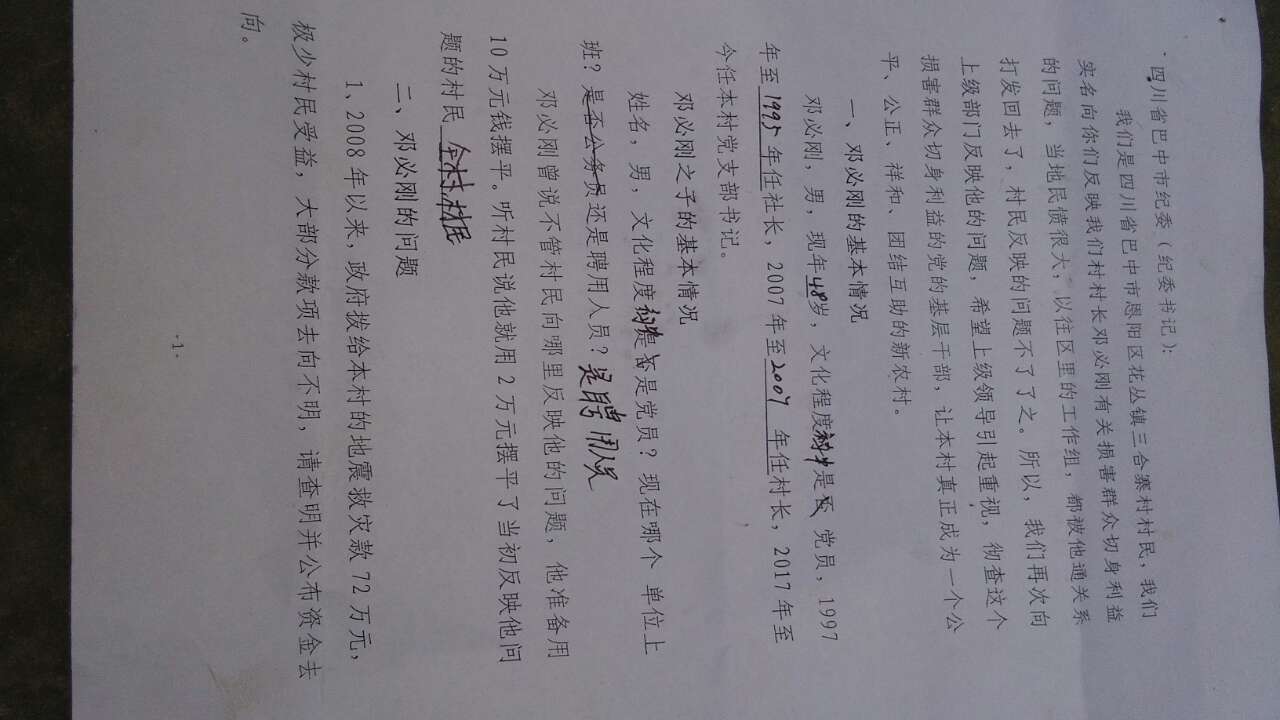 四川省巴中市纪委（纪委书记）：
我们是四川省巴中市恩阳区花丛镇三合寨村村民，我们
实名向你们反映我们村村长邓必刚有关损害群众切身利益
的问题，当地民愤很大，以往区里的工作组，都被他通关系
打发回去了，村民反映的问题不了了之。所以，我们再次向
上级部门反映他的问题，希望上级领导引起重视，彻查这个
损害群众切身利益的党的基层干部，让本村真正成为一个公
平、公正、祥和、团结互助的新农村。
一、邓必刚的基本情况
邓必刚，男，现年48岁，文化程度初中是否党员，1997
年至1995年任社长，2007年至2007年任村长，2017年至
今任本村党支部书记。
邓必刚之子的基本情况
姓名，男，文化程度 是否是党员？现在哪个 单位上
班？是否公务员还是聘用人员？是聘用人员
邓必刚曾说不管村民向哪里反映他的问题，他准备用
10万元钱摆平。听村民说他就用2万元摆平了当初反映他问
题的村民 全村村民
二、邓必刚的问题
1、2008年以来，政府拨给本村的地震救灾款72万元，
极少村民受益，大部分款项去向不明，请查明并公布资金去
向。
·1·